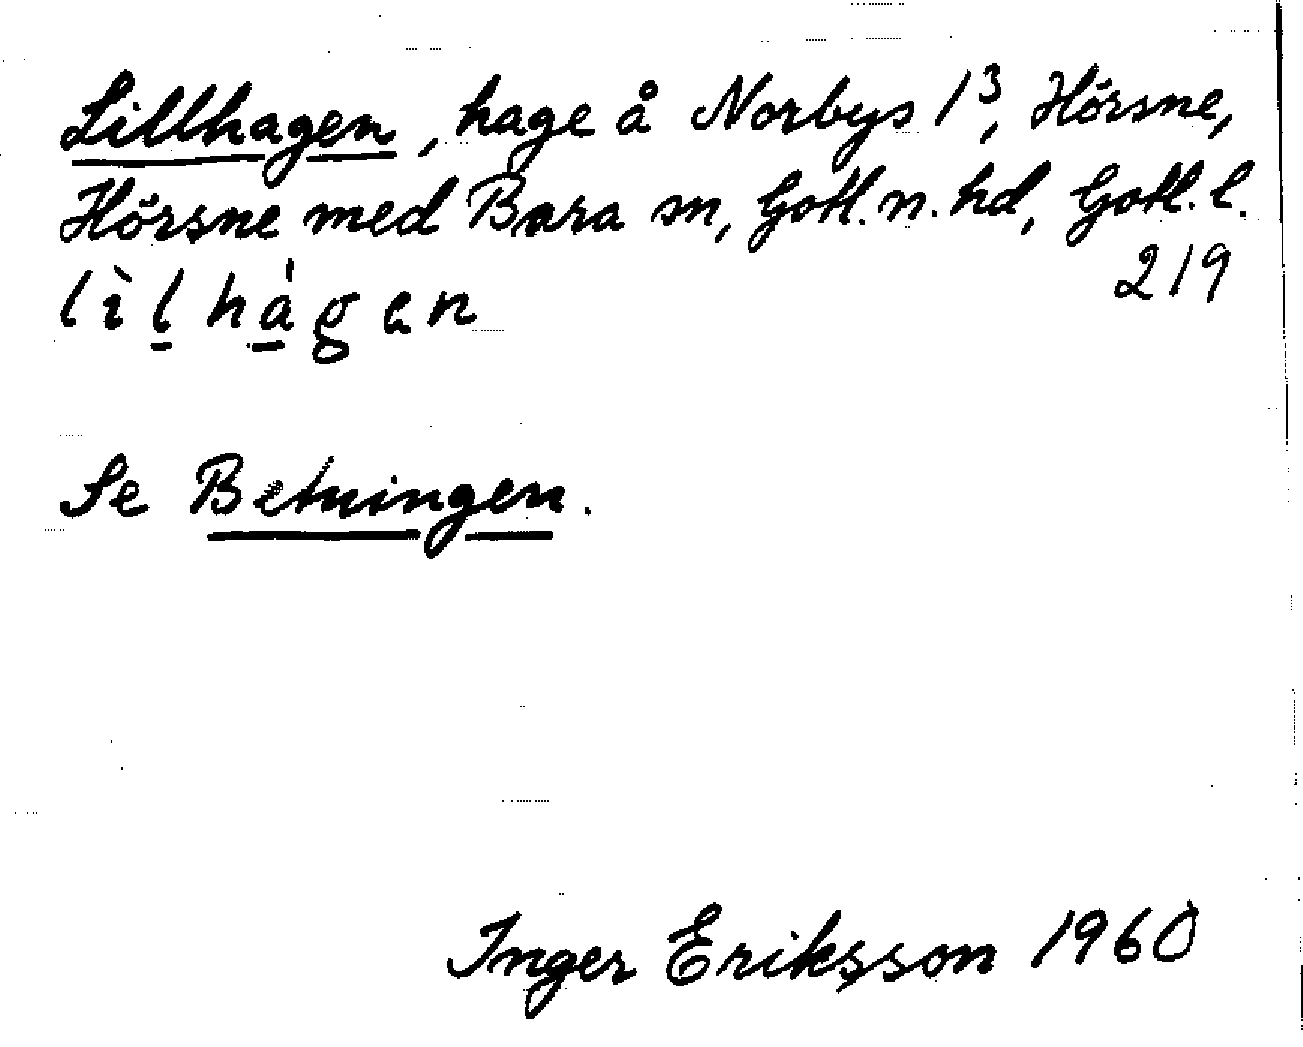 Lillhagen, hage å Norbys 1³, Hörsne,
Hörsne med Bara sn, Gotl. n. hd, Gotl. l.
219
lìlhágen
Se Betningen.
Inger Eriksson 1960